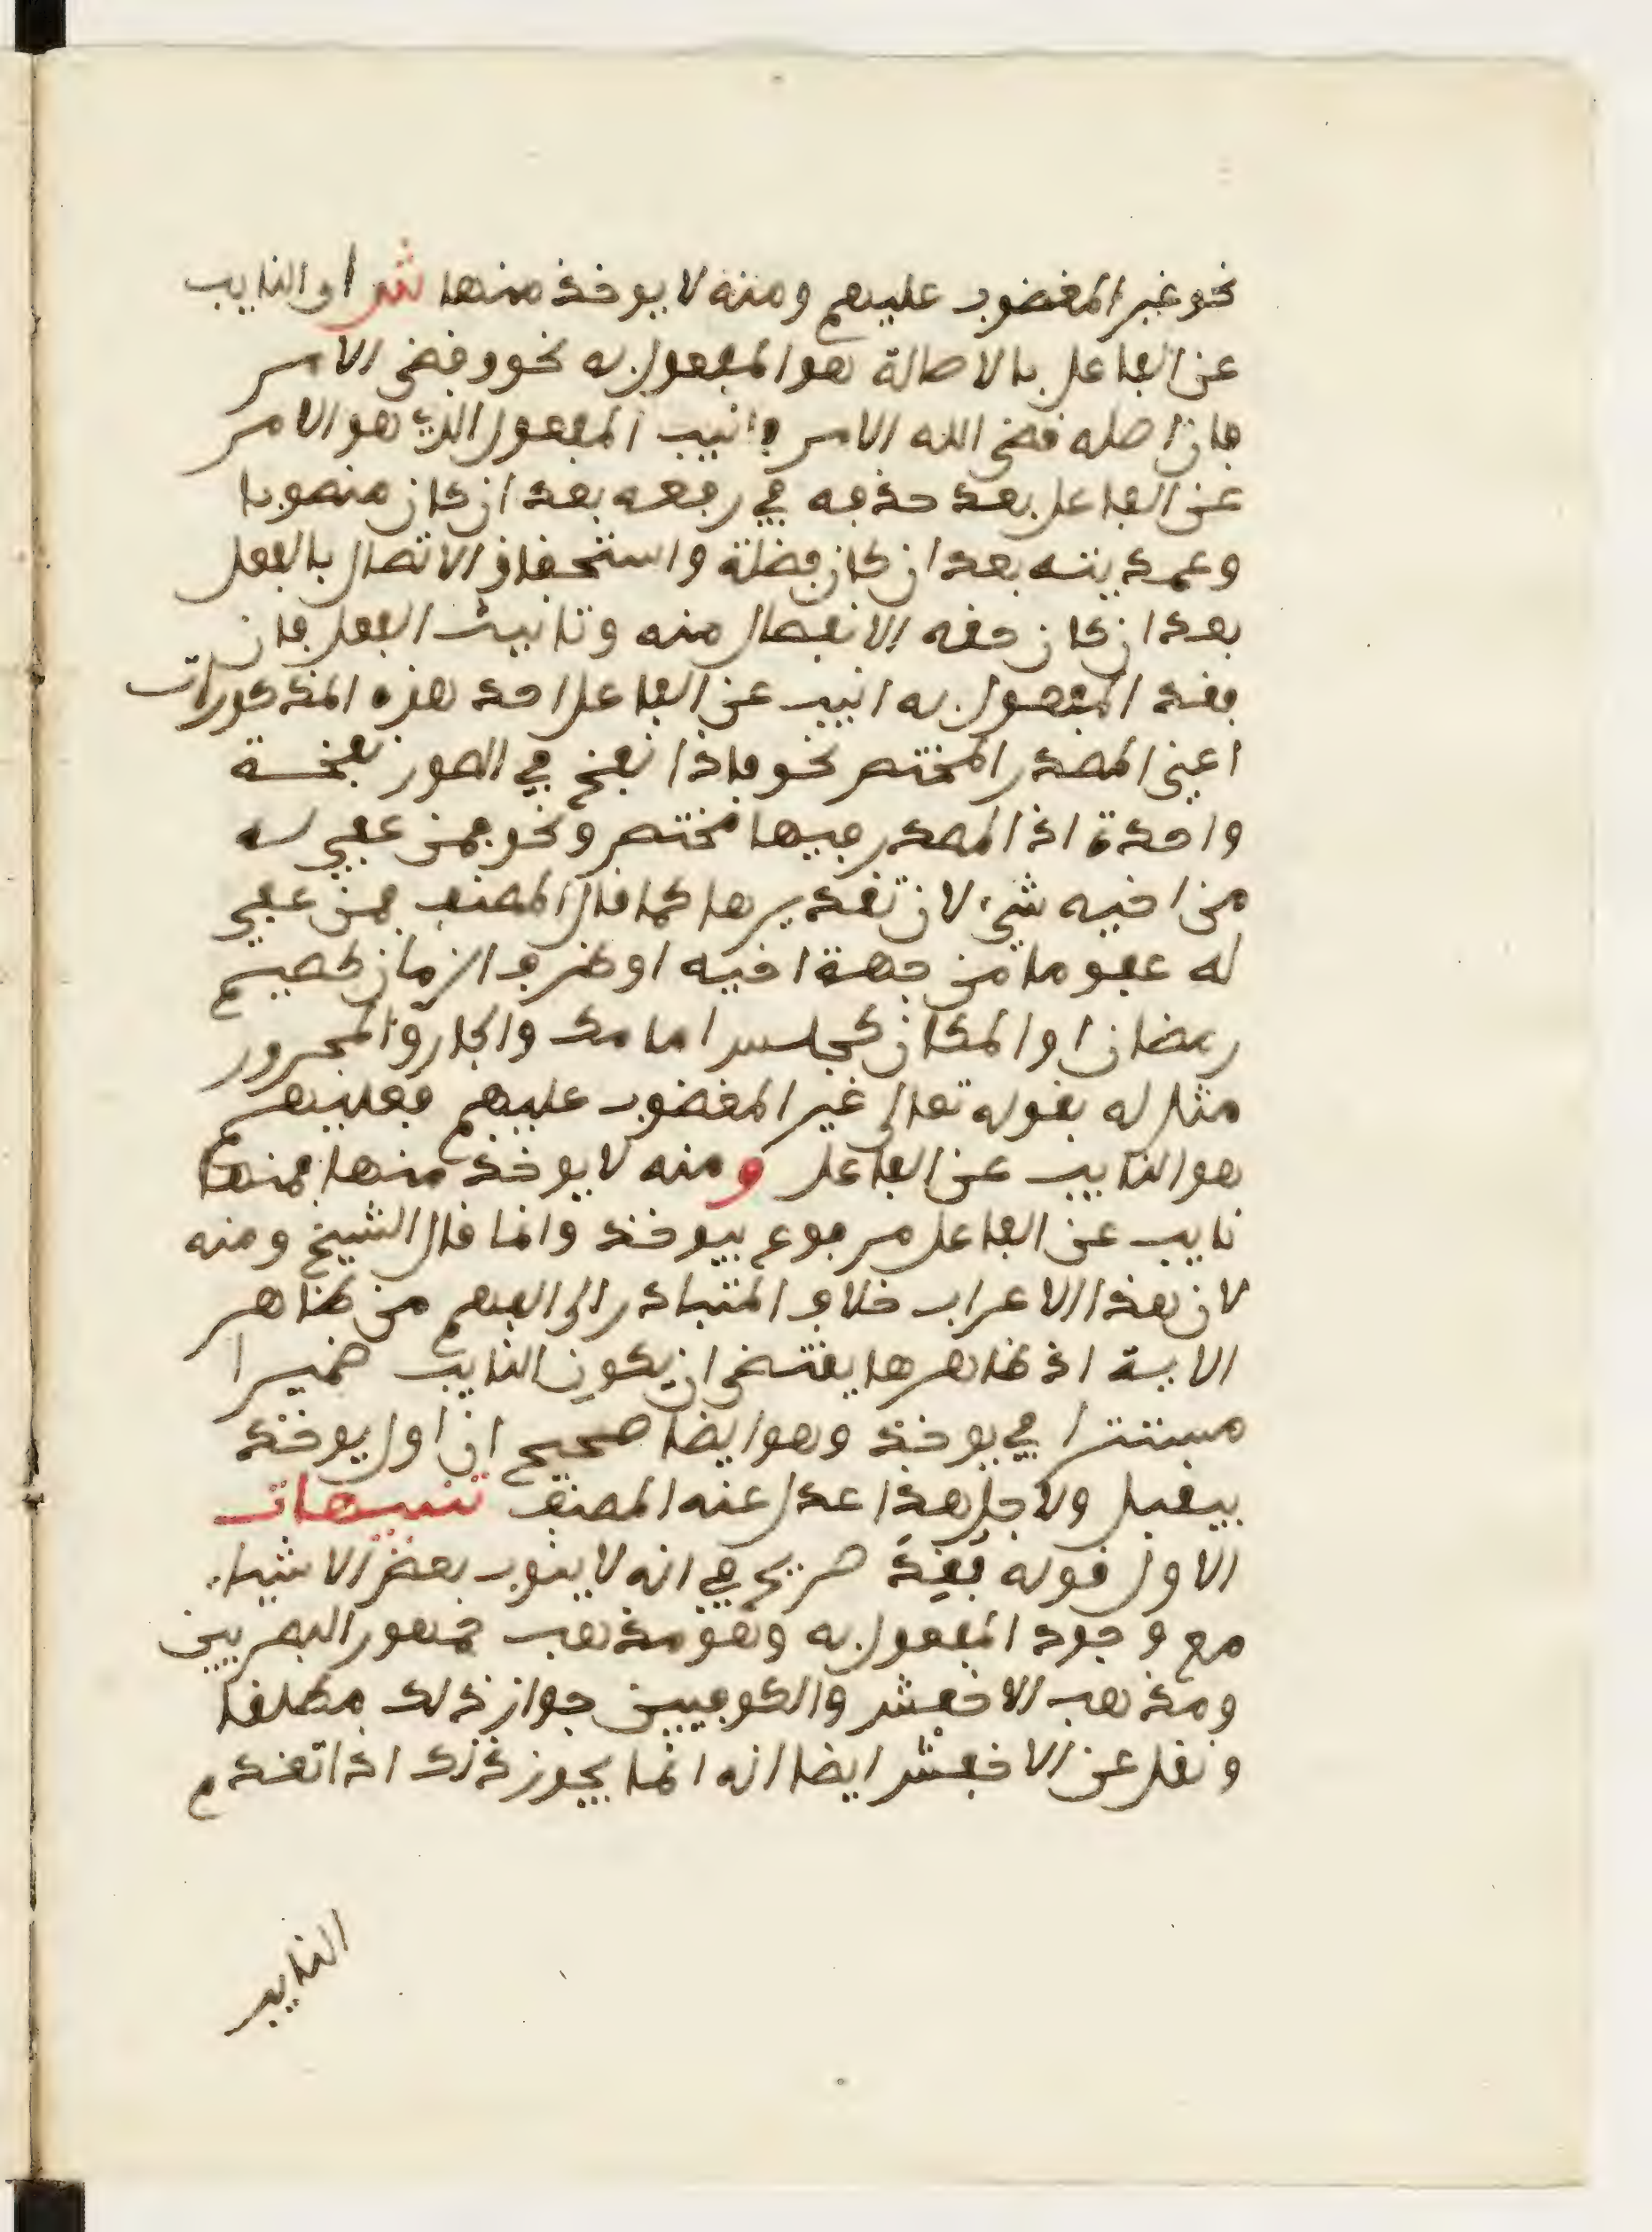 نحو غير المغضوب عليهم ومنه لا يوخذ منها ش او النايب
عن الفاعل بالاصالة هو المفعول به نحو وقضي الامر
فان اصله قضى الله الامر فانيب المفعول الذي هو الامر
عن الفاعل بعد حذفه في رفعه بعد ان كان منصوبا
وعمديته بعد ان كان فضلة واستحقاق الاتصال بالفعل
بعد ان كان حقه الانفصال منه وتانيث الفعل فان
فقد المفعول به انيب عن الفاعل احد هذه المذكورات
اعني المصدر المختص نحو فاذا نفخ في الصور نفخة
واحدة اذ المصدر فيها مختص ونحو فمن عفي له
من اخيه شيء لان تقديرها كما قال المصنف فمن عفي
له عفو ما من جهة اخيه او ظرف الزمان كصيم
رمضان او المكان كجلس امامك والجار والمجرور
مثل له بقوله تعالى غير المغضوب عليهم فعليهم
هو النايب عن الفاعل ومنه لا يوخذ منها فمنها
نايب عن الفاعل مرفوع بيوخذ وانما قال الشيخ ومنه
لان هذا الاعراب خلاف المتبادر الى الفهم من ظاهر
الاية اذ ظاهرها يقتضي ان يكون النايب ضميرا
مستترا في يوخذ وهو ايضا صحيح ان اول يوخذ
بيقبل ولاجل هذا عدل عنه المصنف تنبيهات
الاول قوله فقد صريح في انه لا ينوب بعض الاشياء
مع وجود المفعول به وهو مذهب جمهور البصريين
ومذهب الاخفش والكوفيين جواز ذلك مطلقا
ونقل عن الاخفش ايضا انه انما يجوز ذلك اذا تقدم
النايب